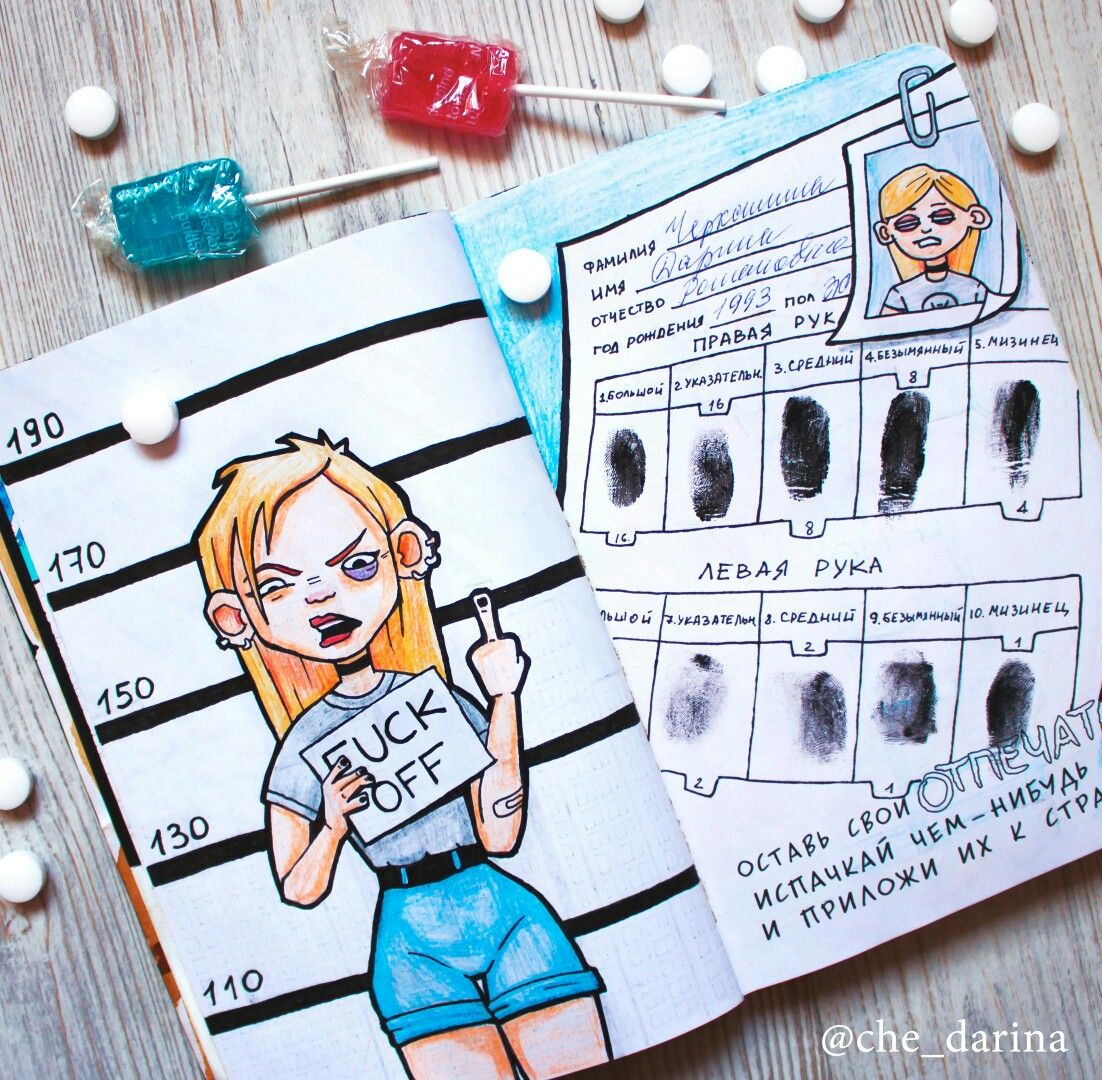 190
170
150
130
110
FUCK
OFF
ФАМИЛИЯ Черкашина
ИМЯ Дарина
ОТЧЕСТВО Романовна
ГОД РОЖДЕНИЯ 1993 ПОЛ Ж
ПРАВАЯ РУК
1.БОЛЬШОЙ 2.УКАЗАТЕЛЬН 3.СРЕДНИЙ 4.БЕЗЫМЯННЫЙ 5.МИЗИНЕЦ
16 8
16. 8 4
ЛЕВАЯ РУКА
ЛЬШОЙ 7.УКАЗАТЕЛЬН 8.СРЕДНИЙ 9.БЕЗЫМЯННЫЙ 10.МИЗИНЕЦ
2 1
2 1
ОСТАВЬ СВОИ ОТПЕЧАТ
ИСПАЧКАЙ ЧЕМ-НИБУДЬ
И ПРИЛОЖИ ИХ К СТРА
@che_darina